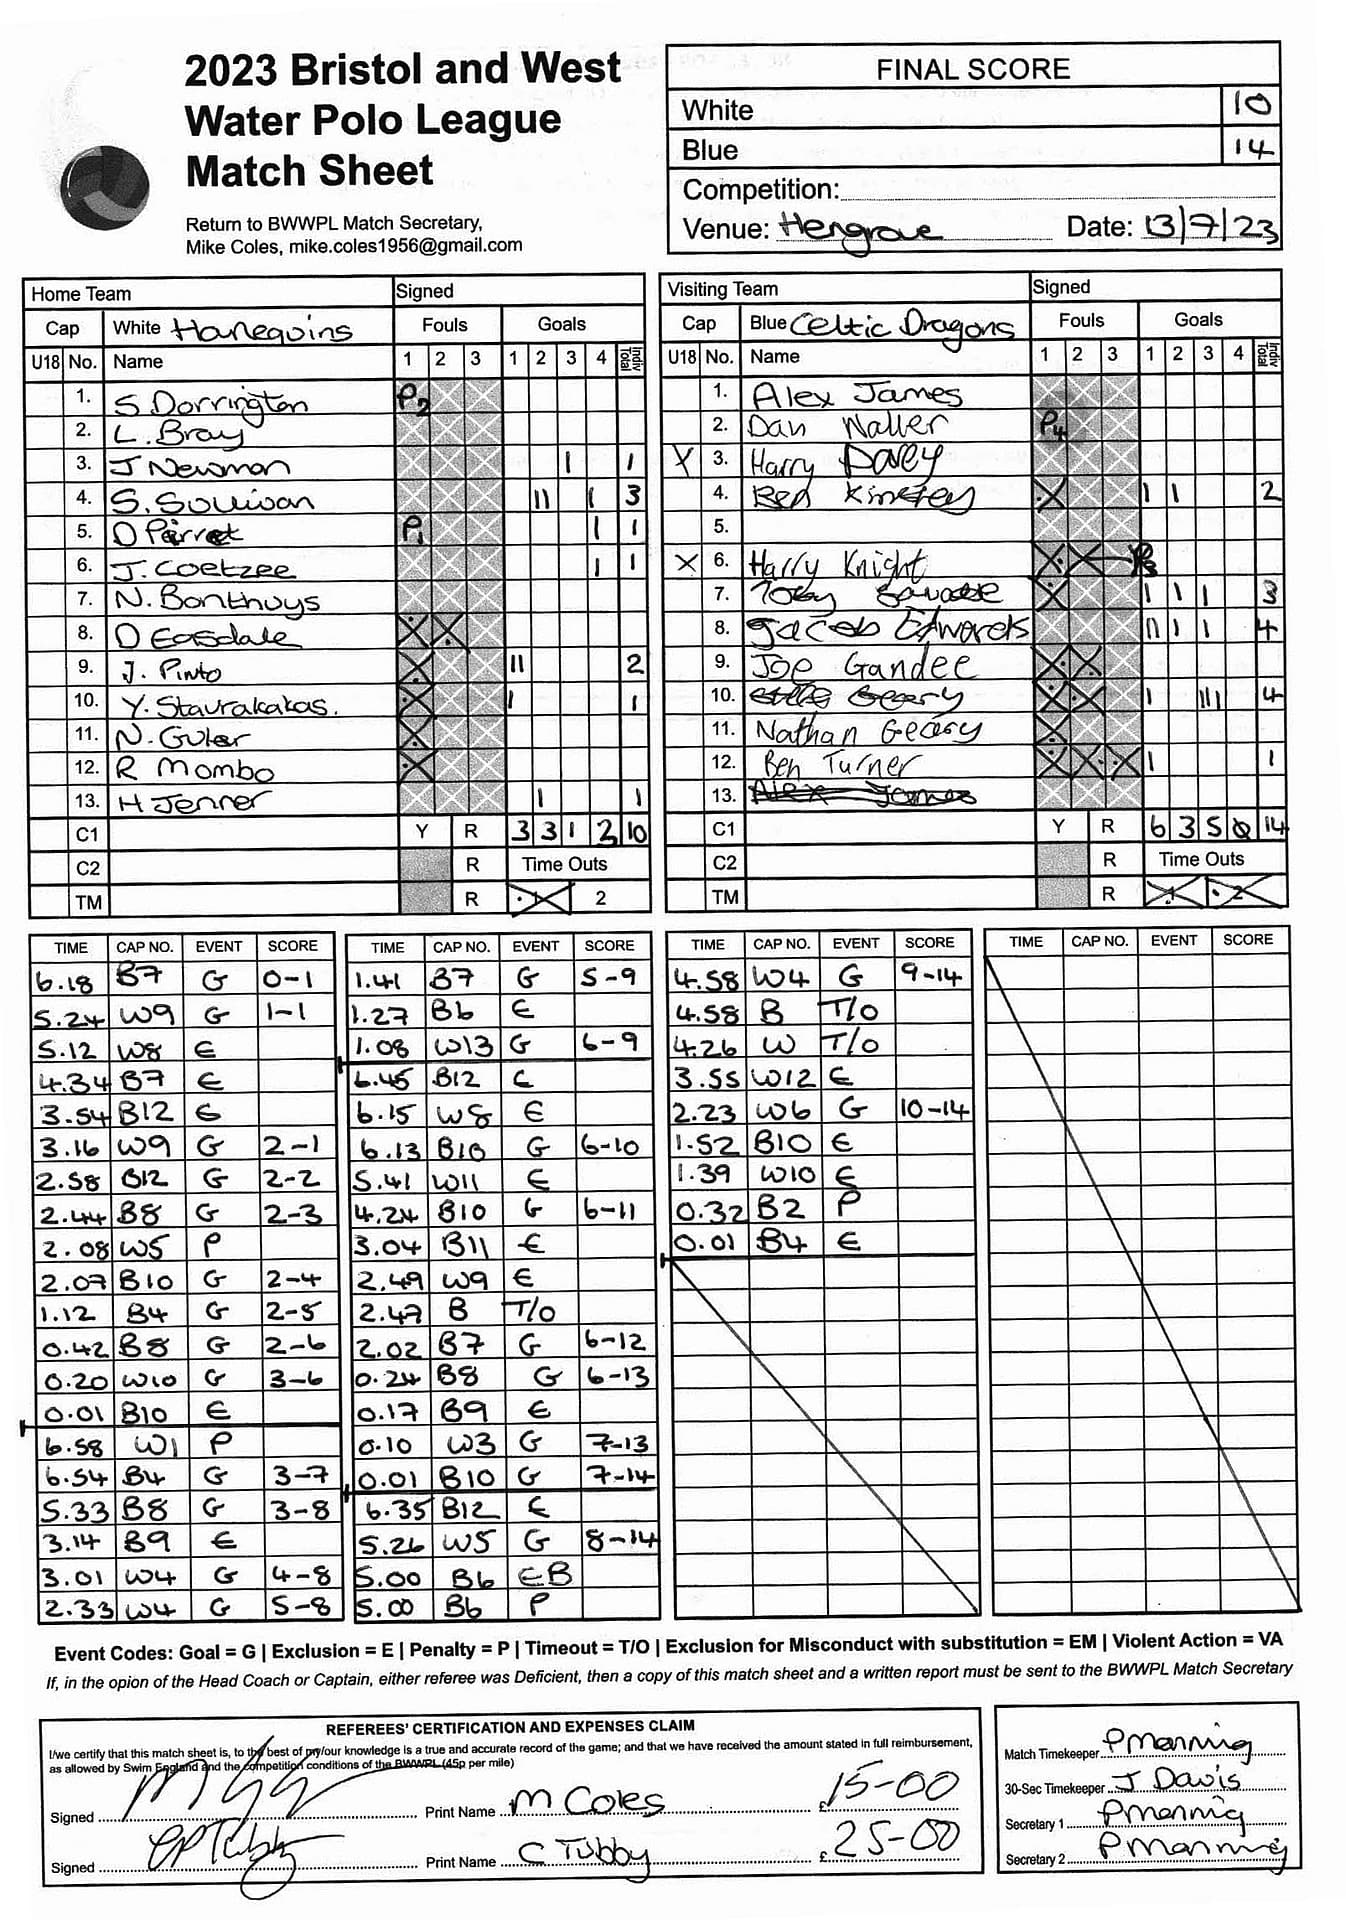 2023 Bristol and West
Water Polo League
Match Sheet
Return to BWWPL Match Secretary,
Mike Coles, mike.coles1956@gmail.com
FINAL SCORE
White 10
Blue 14
Competition:
Venue: Hengrove Date: 13/7/23
Home Team Signed
Cap White Harlequins Fouls Goals
U18 No. Name 1 2 3 1 2 3 4 Indiv Total
1. S Dorrington P2
2. L. Bray
3. J Newman 1 1
4. S. Sullivan 11 1 3
5. D Parrot P1 1 1
6. J. Coetzee 1 1
7. N. Bonthuys
8. D Easdale X X
9. J. Pinto X 11 2
10. Y. Stavrakakas. X 1 1
11. N. Guler X
12. R Mombo X
13. H Jenner 1 1
C1 Y R 3 3 1 2 10
C2 R Time Outs
TM R 1 2
Visiting Team Signed
Cap Blue Celtic Dragons Fouls Goals
U18 No. Name 1 2 3 1 2 3 4 Indiv Total
1. Alex James
2. Dan Waller P4
X 3. Harry Davey
4. Ben X 1 1 2
5.
X 6. Harry Knight X X P3
7. Toby X 1 1 1 3
8. Jacob Edwards 11 1 1 4
9. Joe Gandee X X
10. Geary X X 1 111 4
11. Nathan Geary X
12. Ben Turner X X X 1 1
13. Alex James
C1 Y R 6 3 5 0 14
C2 R Time Outs
TM R 1 2
TIME CAP NO. EVENT SCORE
6.18 B7 G 0-1
5.24 W9 G 1-1
5.12 W8 E
4.34 B7 E
3.54 B12 E
3.16 W9 G 2-1
2.58 B12 G 2-2
2.44 B8 G 2-3
2.08 W5 P
2.07 B10 G 2-4
1.12 B4 G 2-5
0.42 B8 G 2-6
0.20 W10 G 3-6
0.01 B10 E
6.58 W1 P
6.54 B4 G 3-7
5.33 B8 G 3-8
3.14 B9 E
3.01 W4 G 4-8
2.33 W4 G 5-8
TIME CAP NO. EVENT SCORE
1.41 B7 G 5-9
1.27 B6 E
1.08 W13 G 6-9
6.45 B12 E
6.15 W8 E
6.13 B10 G 6-10
5.41 W11 E
4.24 B10 G 6-11
3.04 B11 E
2.49 W9 E
2.47 B T/O
2.02 B7 G 6-12
0.24 B8 G 6-13
0.17 B9 E
0.10 W3 G 7-13
0.01 B10 G 7-14
6.35 B12 E
5.26 W5 G 8-14
5.00 B6 EB
5.00 B6 P
TIME CAP NO. EVENT SCORE
4.58 W4 G 9-14
4.58 B T/O
4.26 W T/O
3.55 W12 E
2.23 W6 G 10-14
1.52 B10 E
1.39 W10 E
0.32 B2 P
0.01 B4 E
TIME CAP NO. EVENT SCORE
Event Codes: Goal = G | Exclusion = E | Penalty = P | Timeout = T/O | Exclusion for Misconduct with substitution = EM | Violent Action = VA
If, in the opion of the Head Coach or Captain, either referee was Deficient, then a copy of this match sheet and a written report must be sent to the BWWPL Match Secretary
REFEREES' CERTIFICATION AND EXPENSES CLAIM
I/we certify that this match sheet is, to the best of my/our knowledge is a true and accurate record of the game; and that we have received the amount stated in full reimbursement,
as allowed by Swim England and the competition conditions of the BWWPL (45p per mile)
Signed Print Name M Coles £15-00
Signed Print Name C Tubby £25-00
Match Timekeeper P Manning
30-Sec Timekeeper J Davis
Secretary 1 P Manning
Secretary 2 P Manning